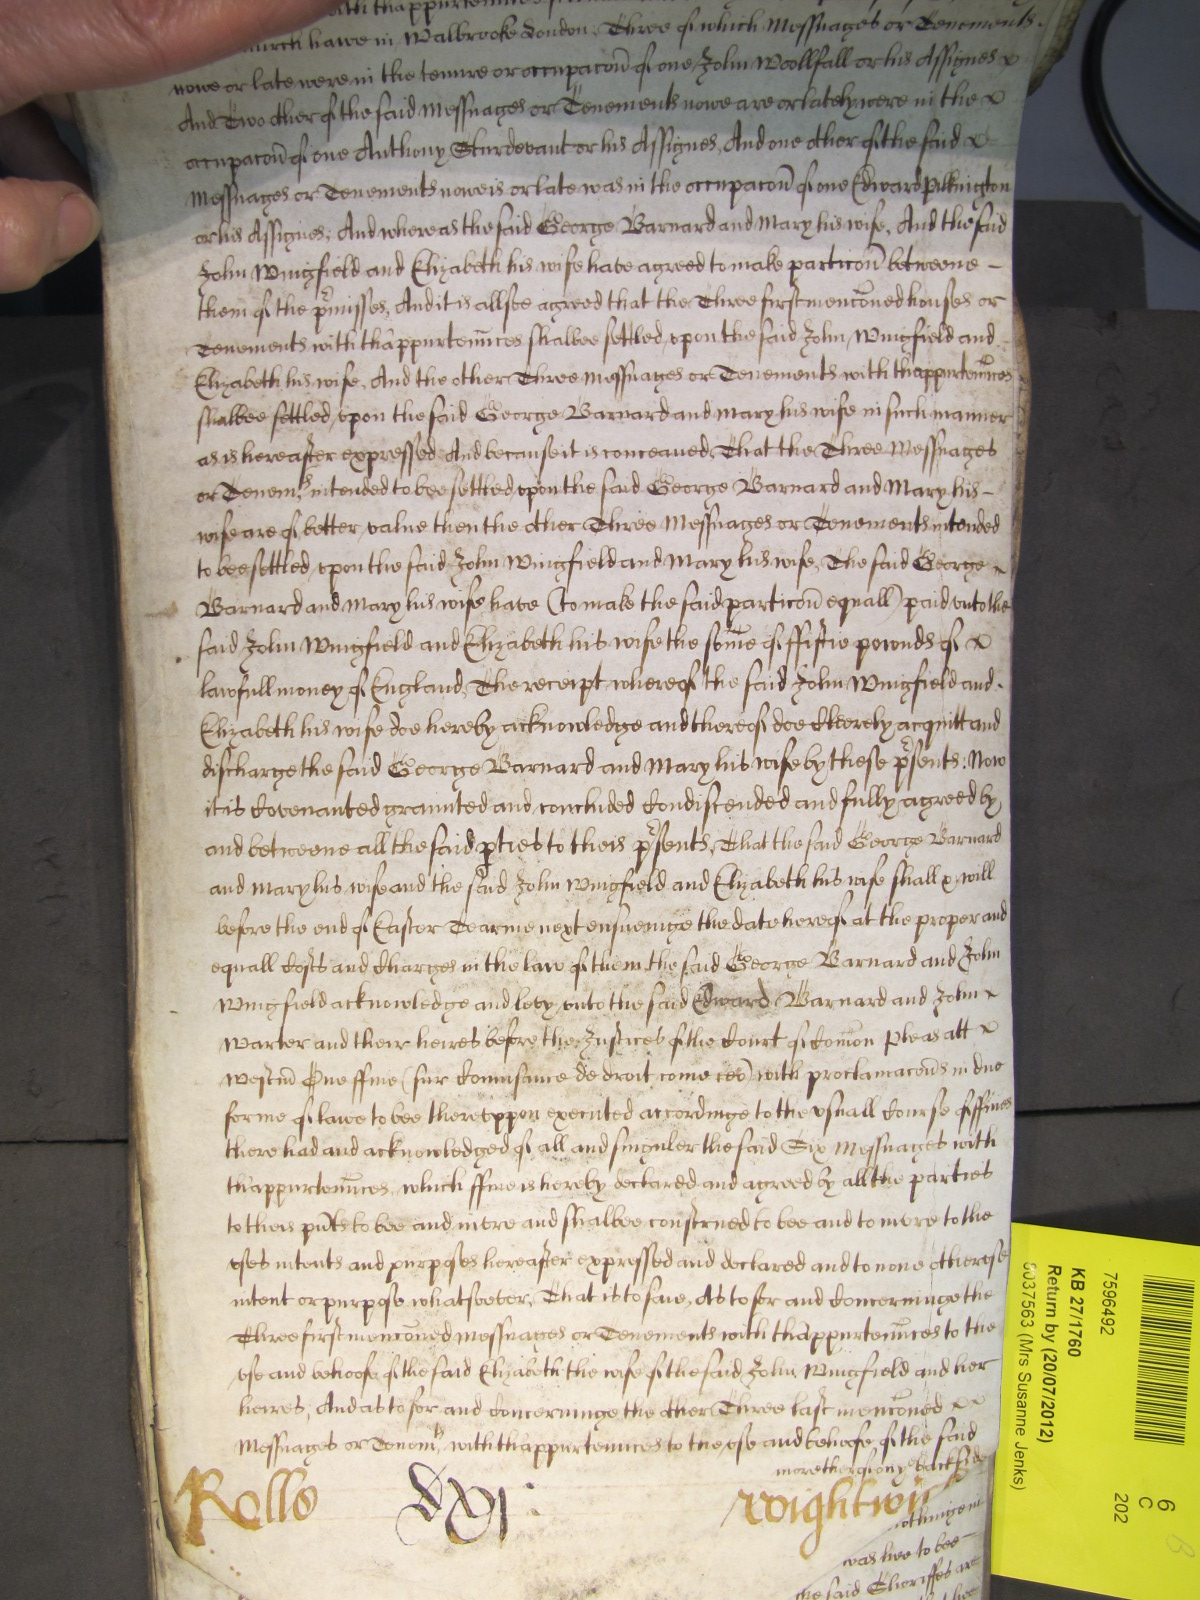 with thappurtenñces
Church hawe in Walbrooke London, Three of which Messuages or Tenements
nowe or late were in the tenure or occupacoñ of one John Woollfall or his Assignes x
And Two other of the said Messuages or Tenements nowe are or lately were in the x
occupacoñ of one Anthony Sturdevant or his Assignes, And one other of the said x
Messuages or Tenements nowe is or late was in the occupacoñ of one Edward Pilkington
or his Assignes; And whereas the said George Barnard and Mary his wife, And the said
John Wingfield and Elizabeth his wife have agreed to make particoñ betweene –
them of the p̃misses, And it is allsoe agreed that the Three first mencõned houses or
Tenements with thappurtenñces shalbee settled upon the said John Wingfield and
Elizabeth his wife, And the other Three Messuages or Tenements with thappurtenñces
shalbee settled upon the said George Barnard and Mary his wife in such manner
as is hereafter expressed And because it is conceaued, That the Three Messuages
or Tenemts intended to bee settled upon the said George Barnard and Mary his –
wife are of better value then the other Three Messuages or Tenements intended
to bee settled upon the said John Wingfield and Mary his wife, The said George x
Barnard and Mary his wife have (to make the said particoñ equall) paid unto the
said John Wingfield and Elizabeth his wife the som̃e of ffiftie pownds of x
lawfull money of England, The receipt whereof the said John Wingfield and
Elizabeth his wife doe hereby acknowledge and thereof doe thereby acquitt and
discharge the said George Barnard and Mary his wife by these p̃sents: Now
it is Covenanted graunted and concluded Condiscended and fully agreed by
and betweene all the said pties to theis p̃sents, That the said George Barnard
and Mary his wife and the said John Wingfield and Elizabeth his wife shall & will
before the end of Easter Tearme next ensueinge the date hereof at the proper and
equall Costs and Charges in the law of them the said George Barnard and John
Wingfield acknowledge and levy unto the said Edward Barnard and John x
Warter and their heires before the Justices of the Court of Com̃on Pleas att x
Westm̃ One ffine (sur Connisance de droit come ceo) with proclamacoñs in due
forme of lawe to bee thereuppon executed accordinge to the usuall Course of ffines
there had and acknowledged of all and singuler the said Six Messuages with
thappurtenñces, which ffine is hereby declared and agreed by all the parties
to theis p̃nts to bee and inure and shalbee construed to bee and to inure to the
uses intents and purposes hereafter expressed and declared and to none other use
intent or purpose whatsoever, That is to saie, As to for and Concerninge the
Three first mencõned Messuages or Tenements with thappurtenñces to the
use and behoofe of the said Elizabeth the wife of the said John Wingfield and her
heires, And as to for and Concerninge the other Three last mencõned x x
Messuages or Tenemts with thappurtenñces to the use and behoofe of the said
more therof on ye backside
Rollo Cxj: Wightwick
nothinge in
was hee to bee
the said Sheriffes are
7596492
KB 27/1760
Return by (20/07/2012)
(Mrs Susanne Jenks)
6
C
202